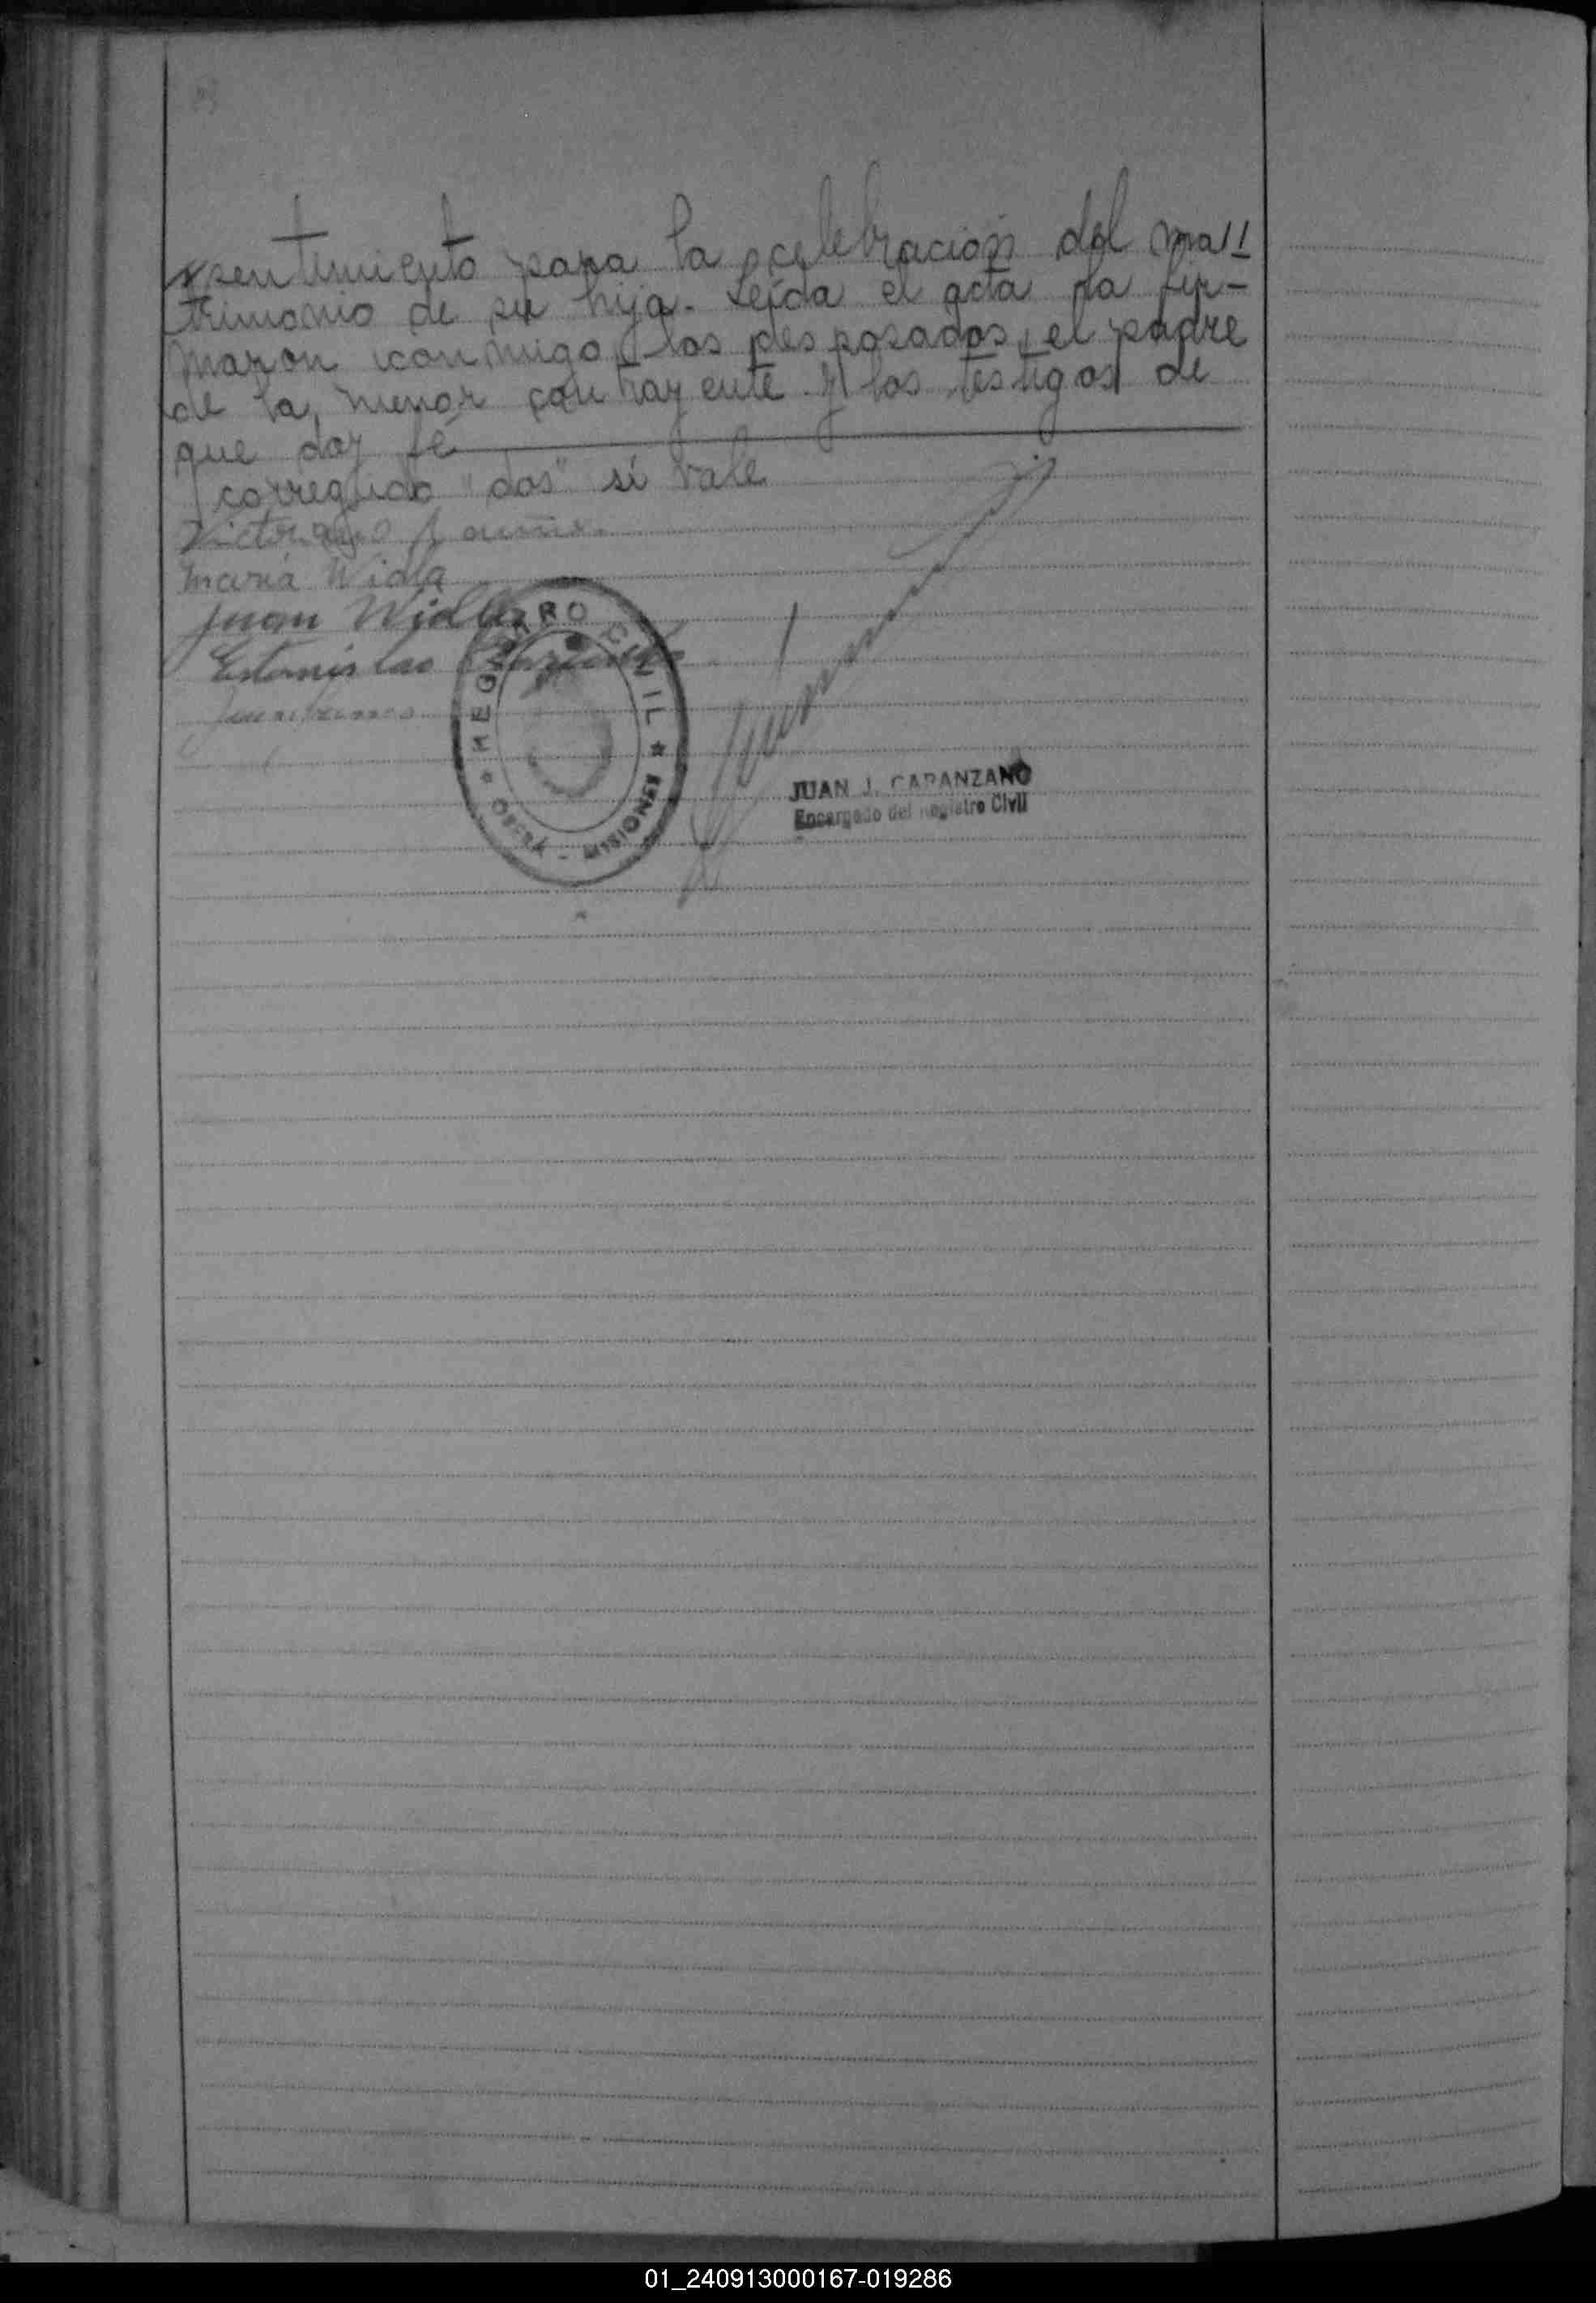 sentimiento para la celebración del ma//
trimonio de su hija. Leída el acta la fir-
maron conmigo, los desposados, el padre
de la menor contrayente y los testigos de
que doy fé
corregido "dos" sí vale
María Wida
Juan Wida
Estanislao
REGISTRO CIVIL
OBERÁ - MISIONES
JUAN J. CAPANZANO
Encargado del Registro Civil
01_240913000167-019286